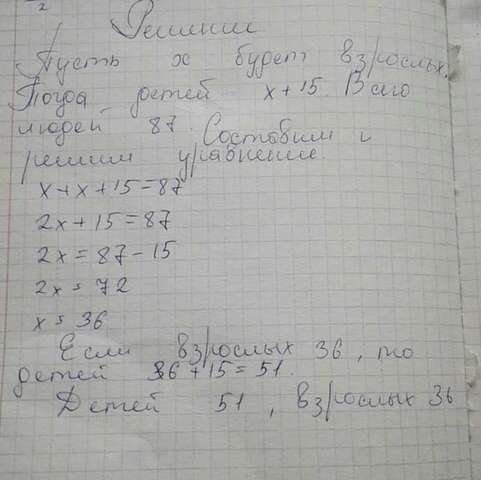 2
Решение
Пусть x будет взрослых.
Тогда детей x+15. Всего
людей 87. Составим и
решим уравнение.
x+x+15=87
2x+15=87
2x=87-15
2x=72
x=36
Если взрослых 36, то
детей 36+15=51.
Детей 51, взрослых 36